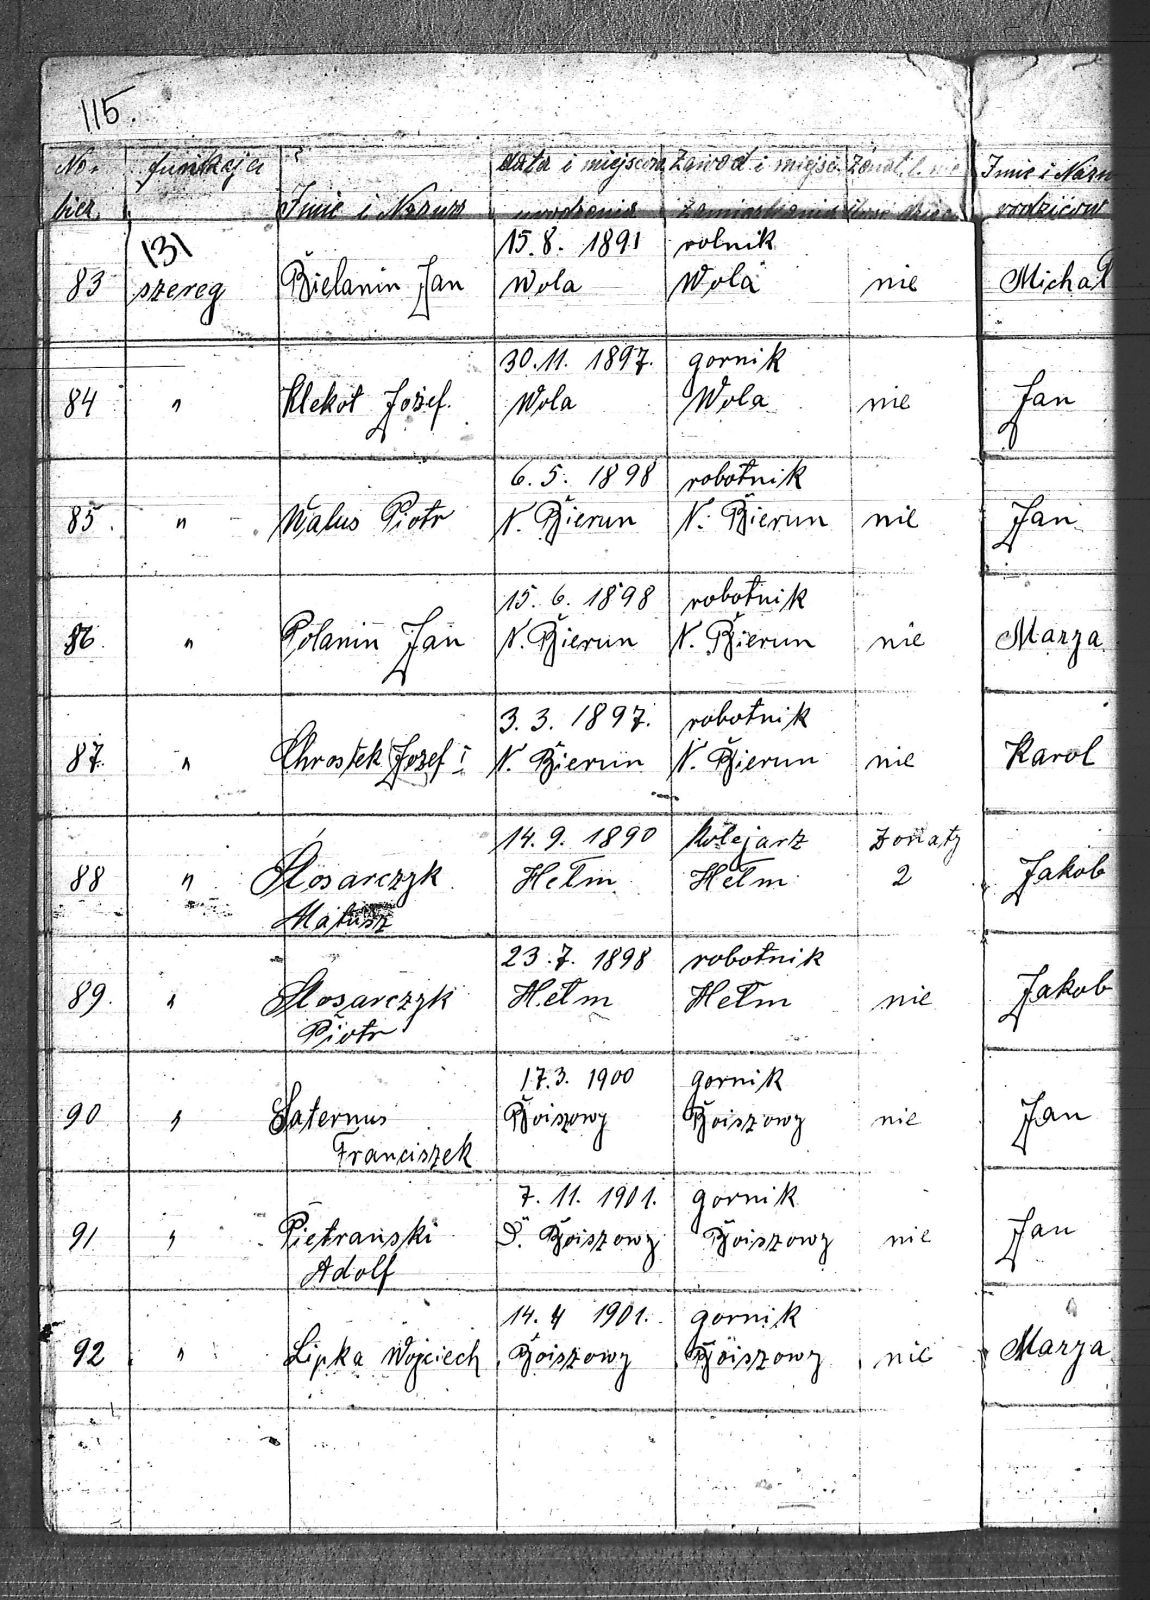 115.
No. funkcja data i miejsce Zawod i miejsc. Żonat. l. nie Imie i Nazw
bież. Imie i Nazwis urodzenia Zamieszkania ilość dzieci rodziców
131 15.8. 1891 rolnik
83 szereg Bielanin Jan Wola Wola nie Michał
30.11. 1897. gornik
84 " Klekot Jozef. Wola Wola nie Jan
6. 5. 1898 robotnik
85. " Walus Piotr N. Bierun N. Bierun nie Jan
15. 6. 1898 robotnik
86. " Polanin Jan N. Bierun N. Bierun nie Marya
3. 3. 1897. robotnik
87. " Chrostek Jozef I N. Bierun N. Bierun nie Karol
14. 9. 1890 Kolejarz Zonaty
88 " Slosarczyk Hełm Hełm 2 Jakob
Matusz
23. 7. 1898 robotnik
89. " Slosarczyk Hełm Hełm nie Jakob
Piotr
17.3. 1900 gornik
90 " Saternus Boiszowy Boiszowy nie Jan
Franciszek
7. 11. 1901. gornik
91 " Pietranski S. Boiszowy Boiszowy nie Jan
Adolf
14. 4 1901. gornik
92 " Lipka Wojciech Boiszowy Boiszowy nie Marya